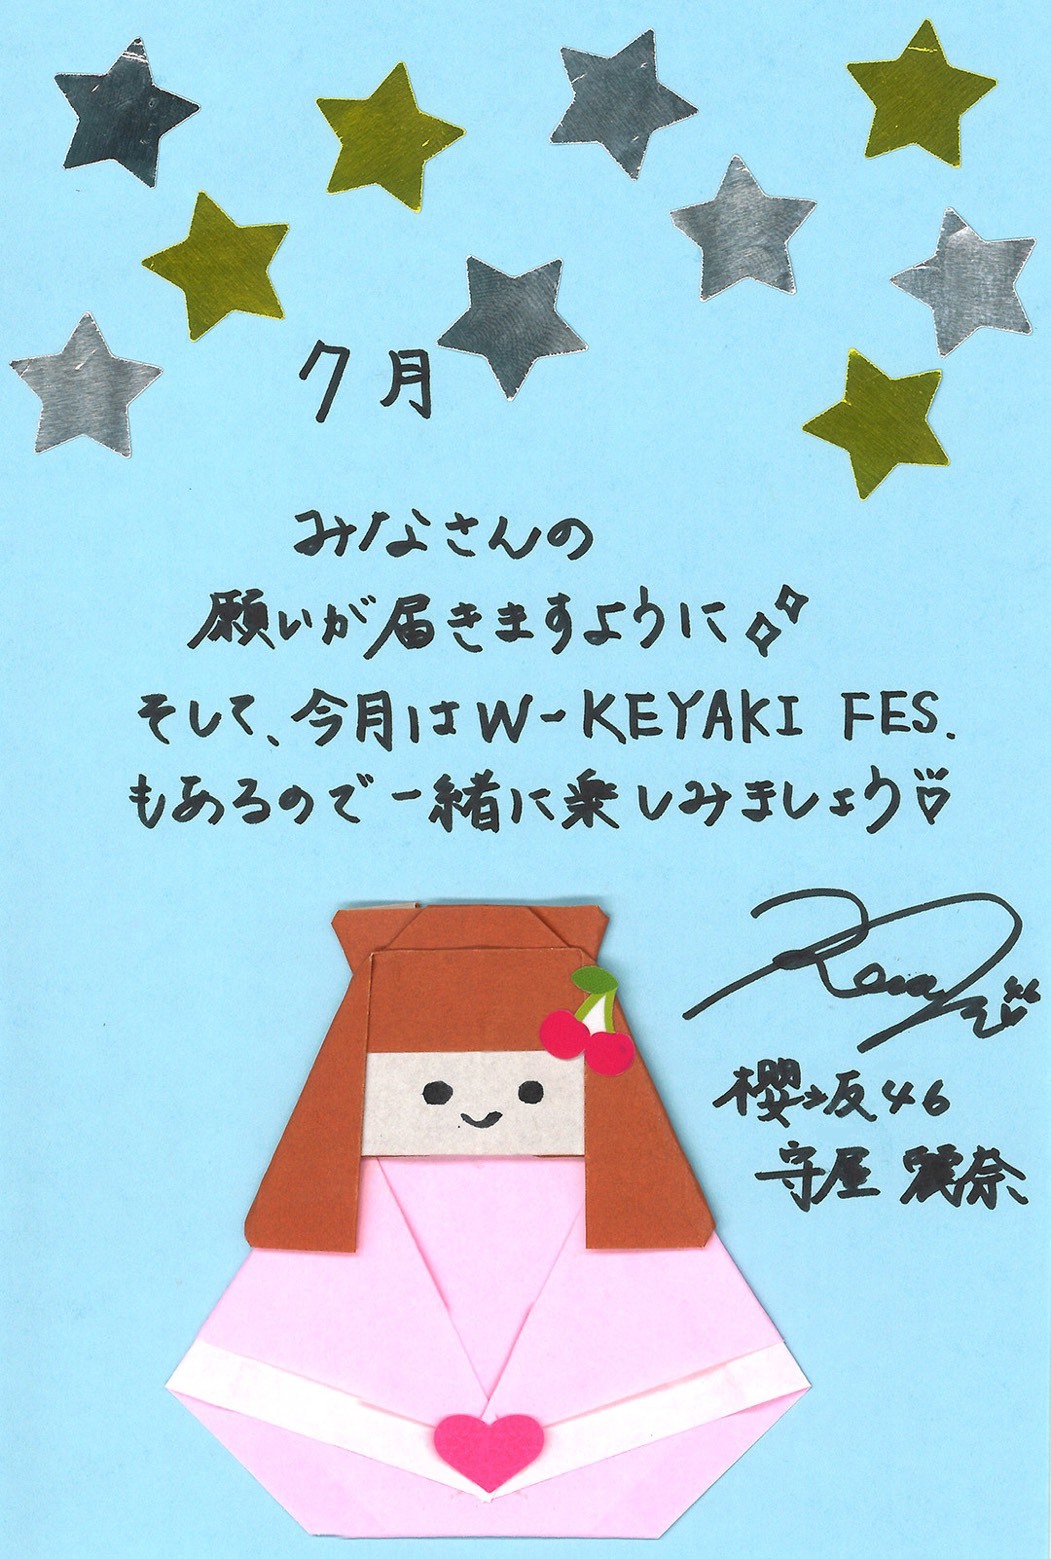 7月
みなさんの
願いが届きますように
そして、今月はW-KEYAKI FES.
もあるので一緒に楽しみましょう♡
櫻坂46
守屋 麗奈